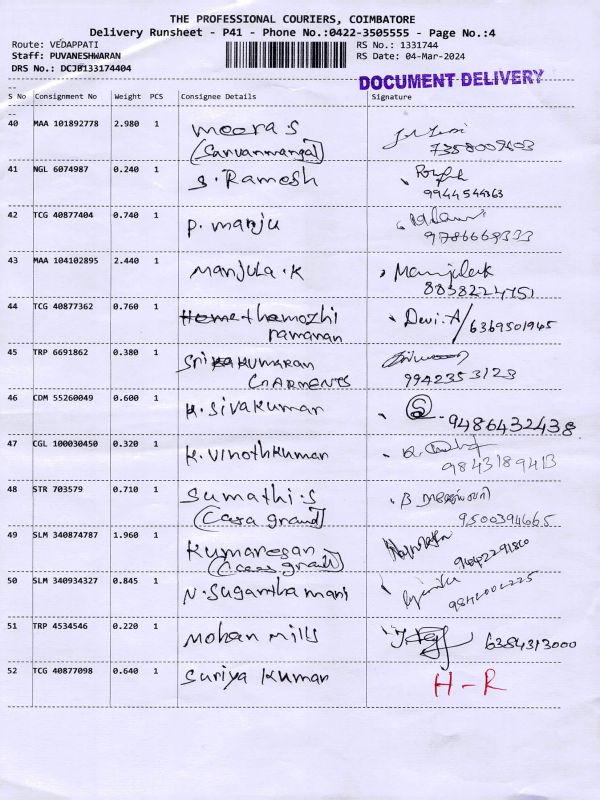 THE PROFESSIONAL COURIERS, COIMBATORE
Delivery Runsheet - P41 - Phone No.:0422-3505555 - Page No.:4
Route: VEDAPPATI RS No.: 1331744
Staff: PUVANESHWARAN RS Date: 04-Mar-2024
DRS No.: DCJB133174404
DOCUMENT DELIVERY
S No Consignment No Weight PCS Consignee Details Signature
40 MAA 101892778 2.980 1 Meera S
(Sarvanmangal)
41 NGL 6074987 0.240 1 S. Ramesh
9944544363
42 TCG 40877404 0.740 1 P. Manju
43 MAA 104102895 2.440 1 Manjula.K Manjula.k
8838224751
44 TCG 40877362 0.760 1 Hemethamozhi Devi.A/6369501945
ramanan
45 TRP 6691862 0.380 1 Sri Kumaran
GARMENTS 9942353123
46 CDM 55260049 0.600 1 K. Sivakumar 9486432438
47 CGL 100030450 0.320 1 K. Vinothkumar
9843189413
48 STR 703579 0.710 1 Sumathi.S
(Casa grand) 9500394665
49 SLM 340874787 1.960 1 Kumaresan
(Casa grand)
50 SLM 340934327 0.845 1 N. Sugantha mani
51 TRP 4534546 0.220 1 Mohan Mills 6384313000
52 TCG 40877098 0.640 1 Suriya Kumar H-R